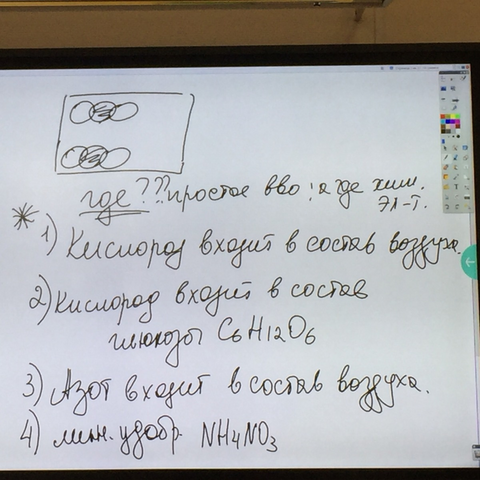 где ??? простое вво; а где хим.
эл-т.
1) Кислород входит в состав воздуха.
2) Кислород входит в состав
глюкозы C6H12O6
3) Азот входит в состав воздуха.
4) мин. удобр. NH4NO3